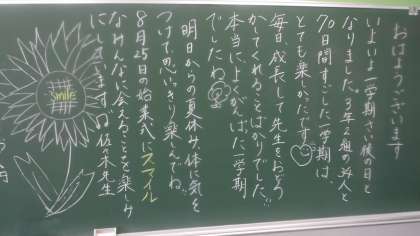 おはようございます
いよいよ一学期さい後の日と
なりました。3年2組の34人と
70日間すごした一学期は、
とても楽しかったです。
毎日、成長して先生をおどろ
かしてくれることばかりでした。
本当に、よくがんばった一学期
でしたね
明日からの夏休み、体に気を
つけて、思いっきり楽しんでね。
8月25日の始業式にスマイル
なみんなに会えることを楽しみ
にしています。佐々木先生
Smile